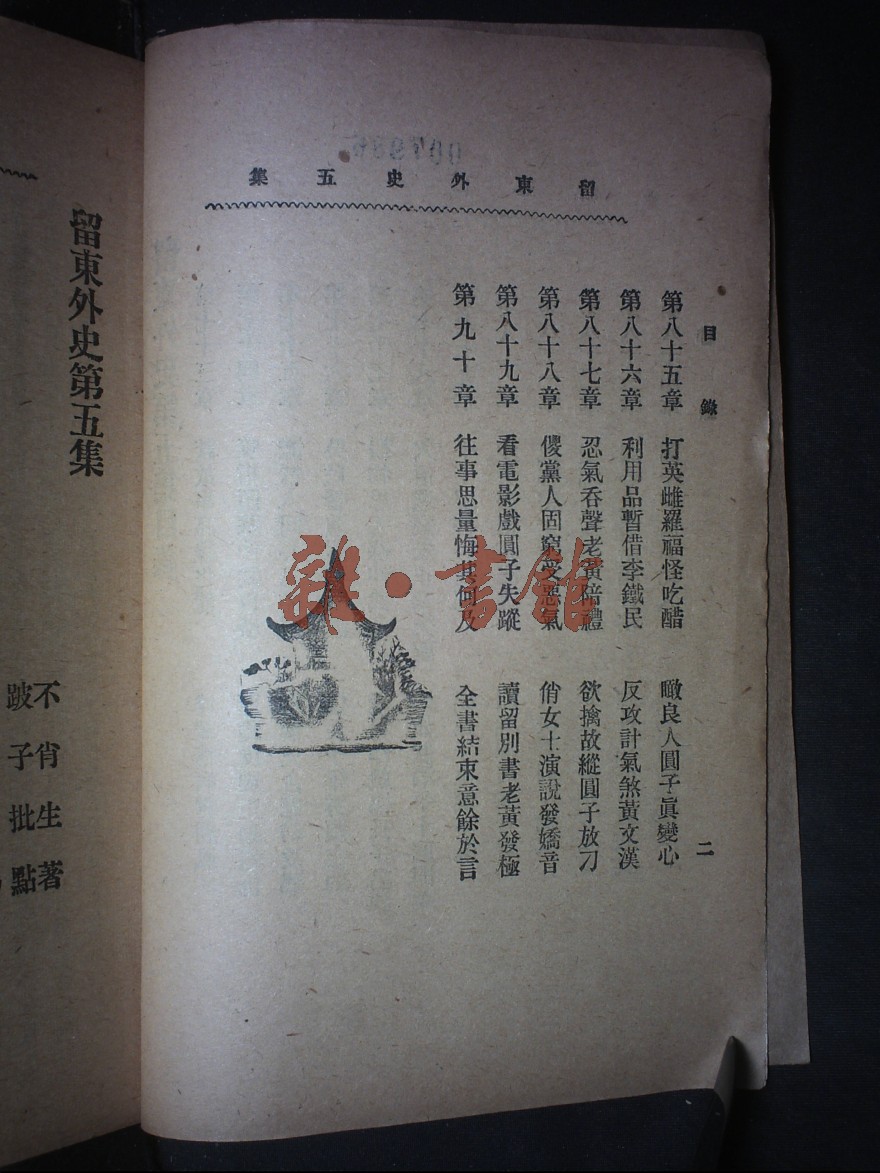 留東外史五集
目錄
二
第八十五章 打英雌羅福怪吃醋 瞰良人圓子眞變心
第八十六章 利用品暫借李鐵民 反攻計氣煞黃文漢
第八十七章 忍氣吞聲老黃陪禮 欲擒故縱圓子放刁
第八十八章 儍黨人固窮受惡氣 俏女士演說發嬌音
第八十九章 看電影戲圓子失蹤 讀留別書老黃發極
第九十章 往事思量悔其何及 全書結束意餘於言
雜·書館
留東外史第五集
不肖生著
跛子批點